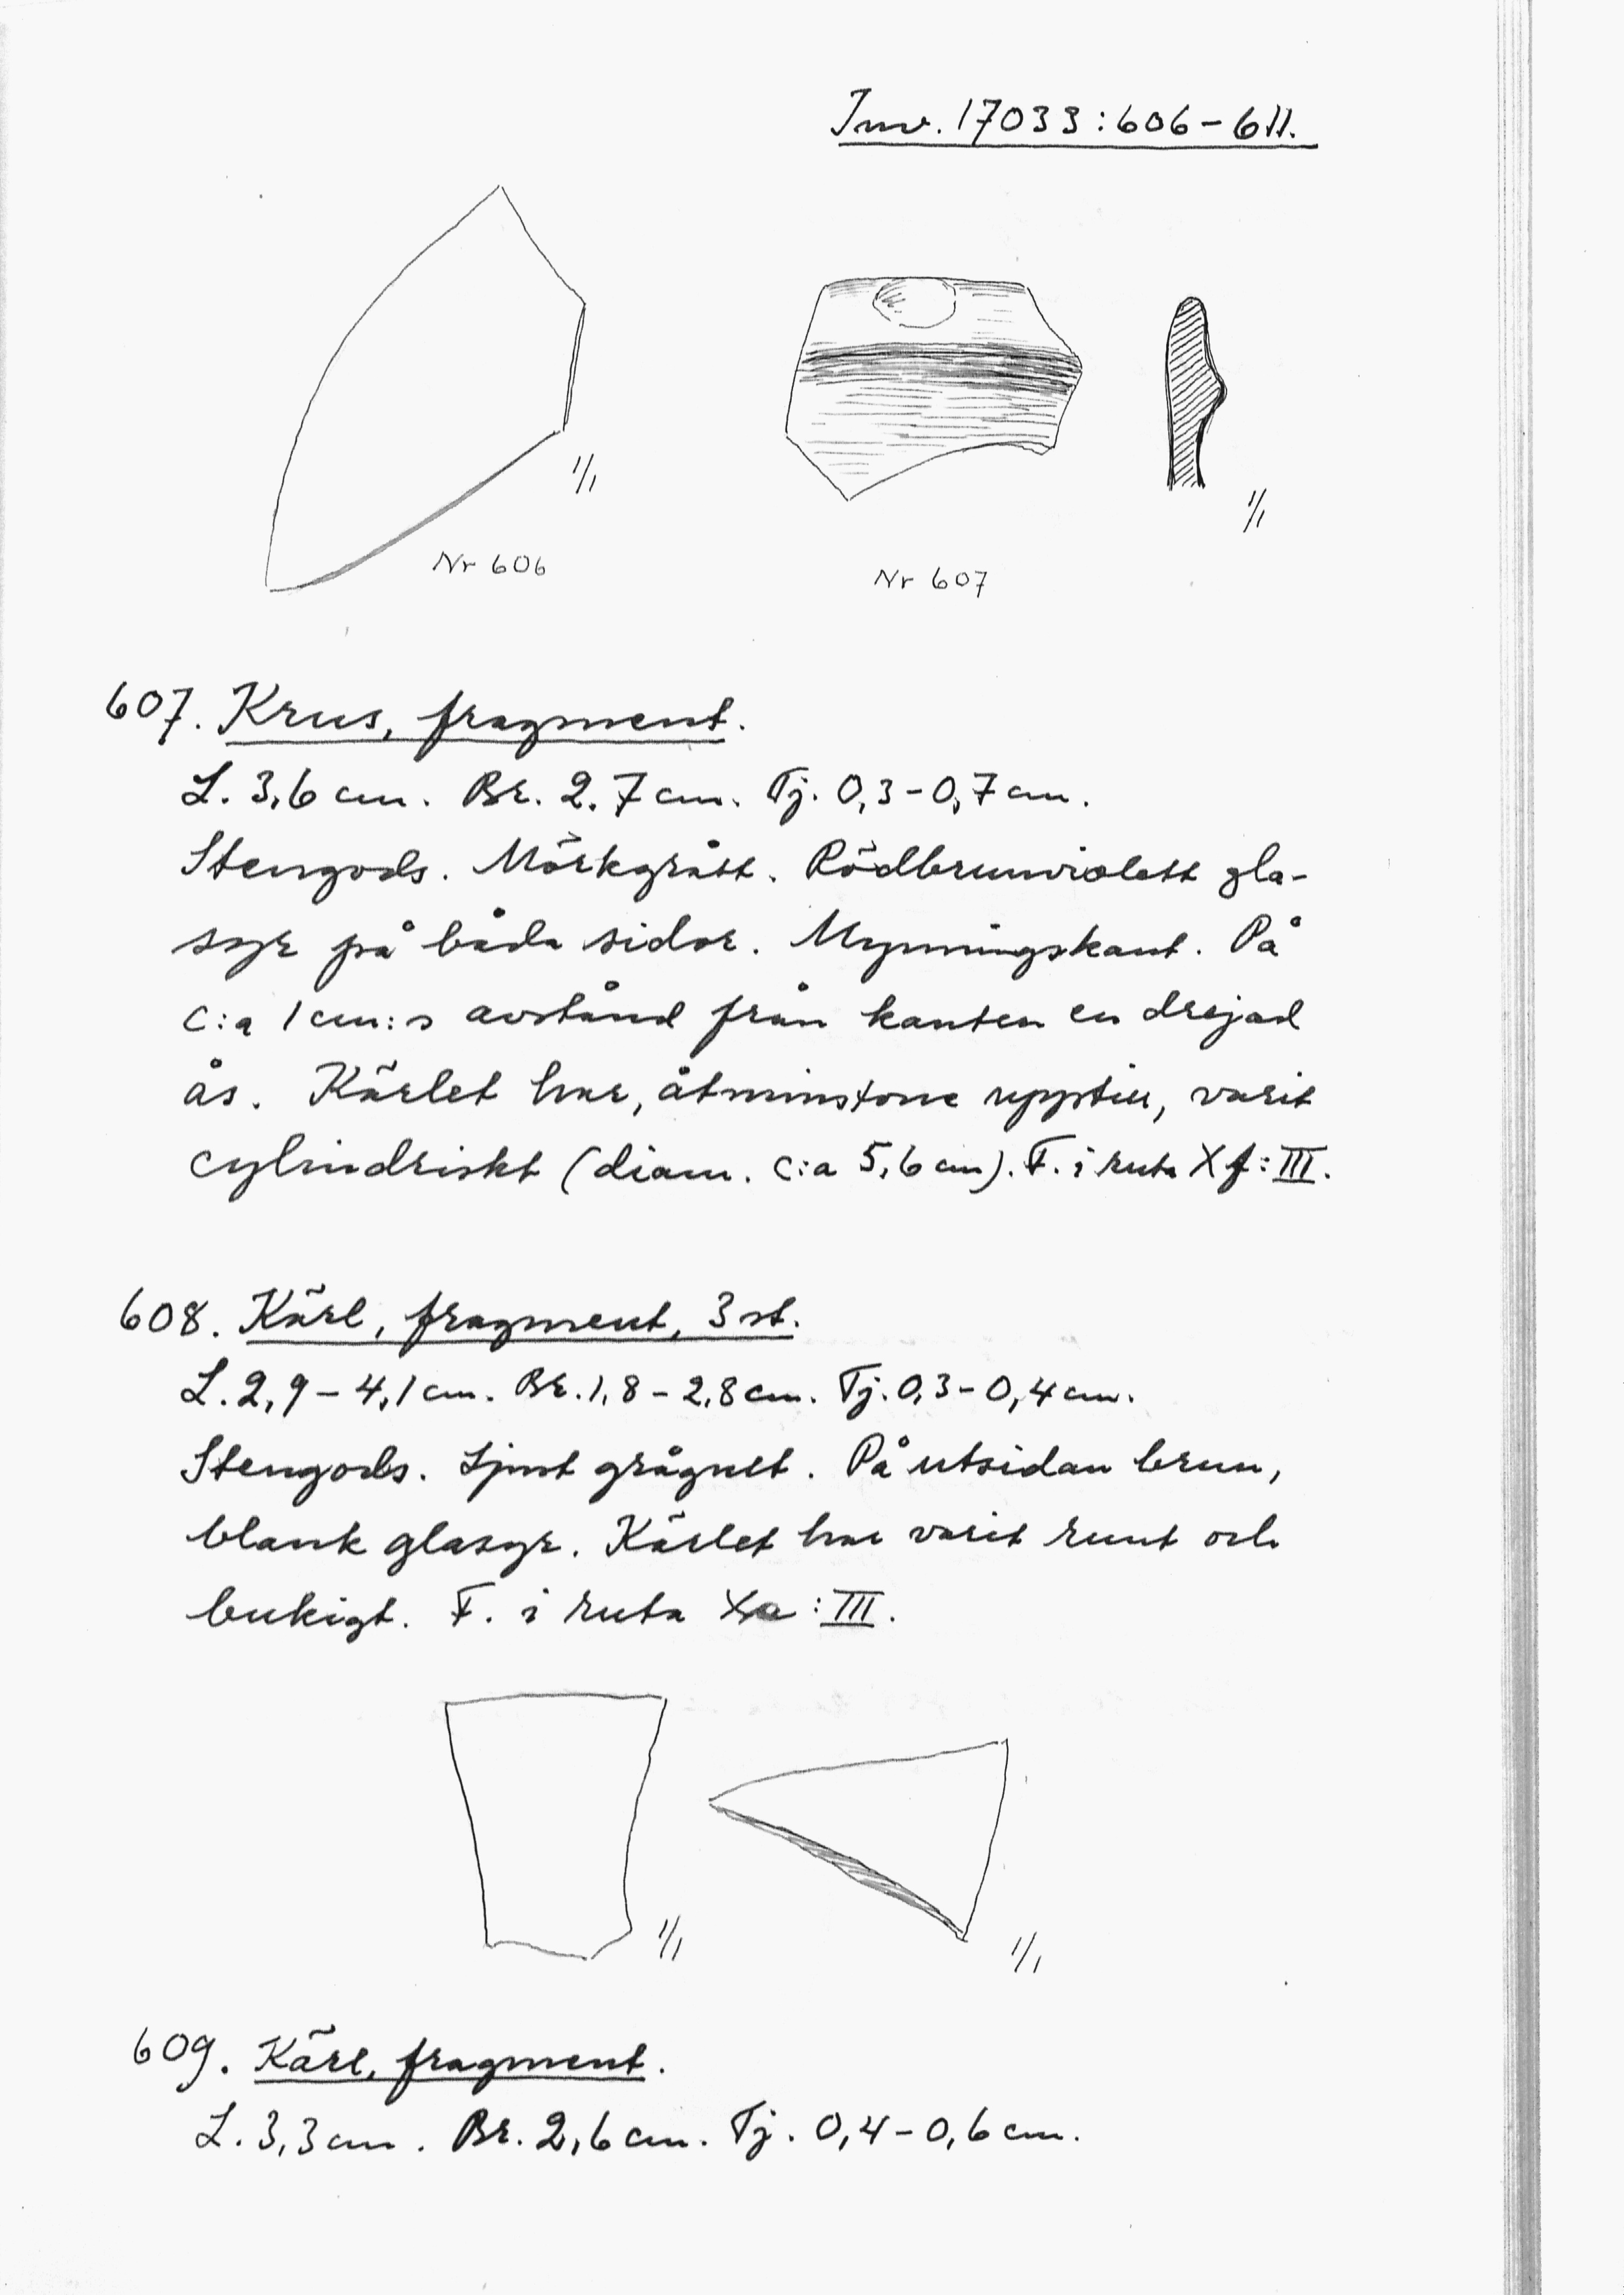 Inv. 17033:606-611.
1/1
1/1
Nr 606
Nr 607
607. Krus, fragment.
L. 3,6 cm. Br. 2,7 cm. Tj. 0,3-0,7 cm.
Stengods. Mörkgrått. Rödbrunviolett gla-
syr på båda sidor. Mynningskant. På
c:a 1 cm:s avstånd från kanten en drejad
ås. Kärlet har, åtminstone upptill, varit
cylindriskt (diam. c:a 5,6 cm). F. i ruta Xf:III.
608. Kärl, fragment, 3 st.
L. 2,9-4,1 cm. Br. 1,8-2,8 cm. Tj. 0,3-0,4 cm.
Stengods. Ljust grågult. På utsidan brun,
blank glasyr. Kärlet har varit runt och
bukigt. F. i ruta Xa:III.
1/1
1/1
609. Kärl, fragment.
L. 3,3 cm. Br. 2,6 cm. Tj. 0,4-0,6 cm.